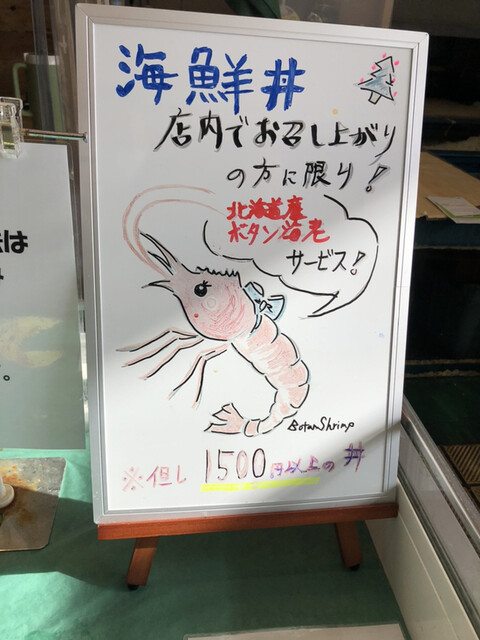 海鮮丼
店内でお召し上がり
の方に限り!
北海道産
ボタン海老
サービス!
BotanShrimp
※但し 1500円以上の丼